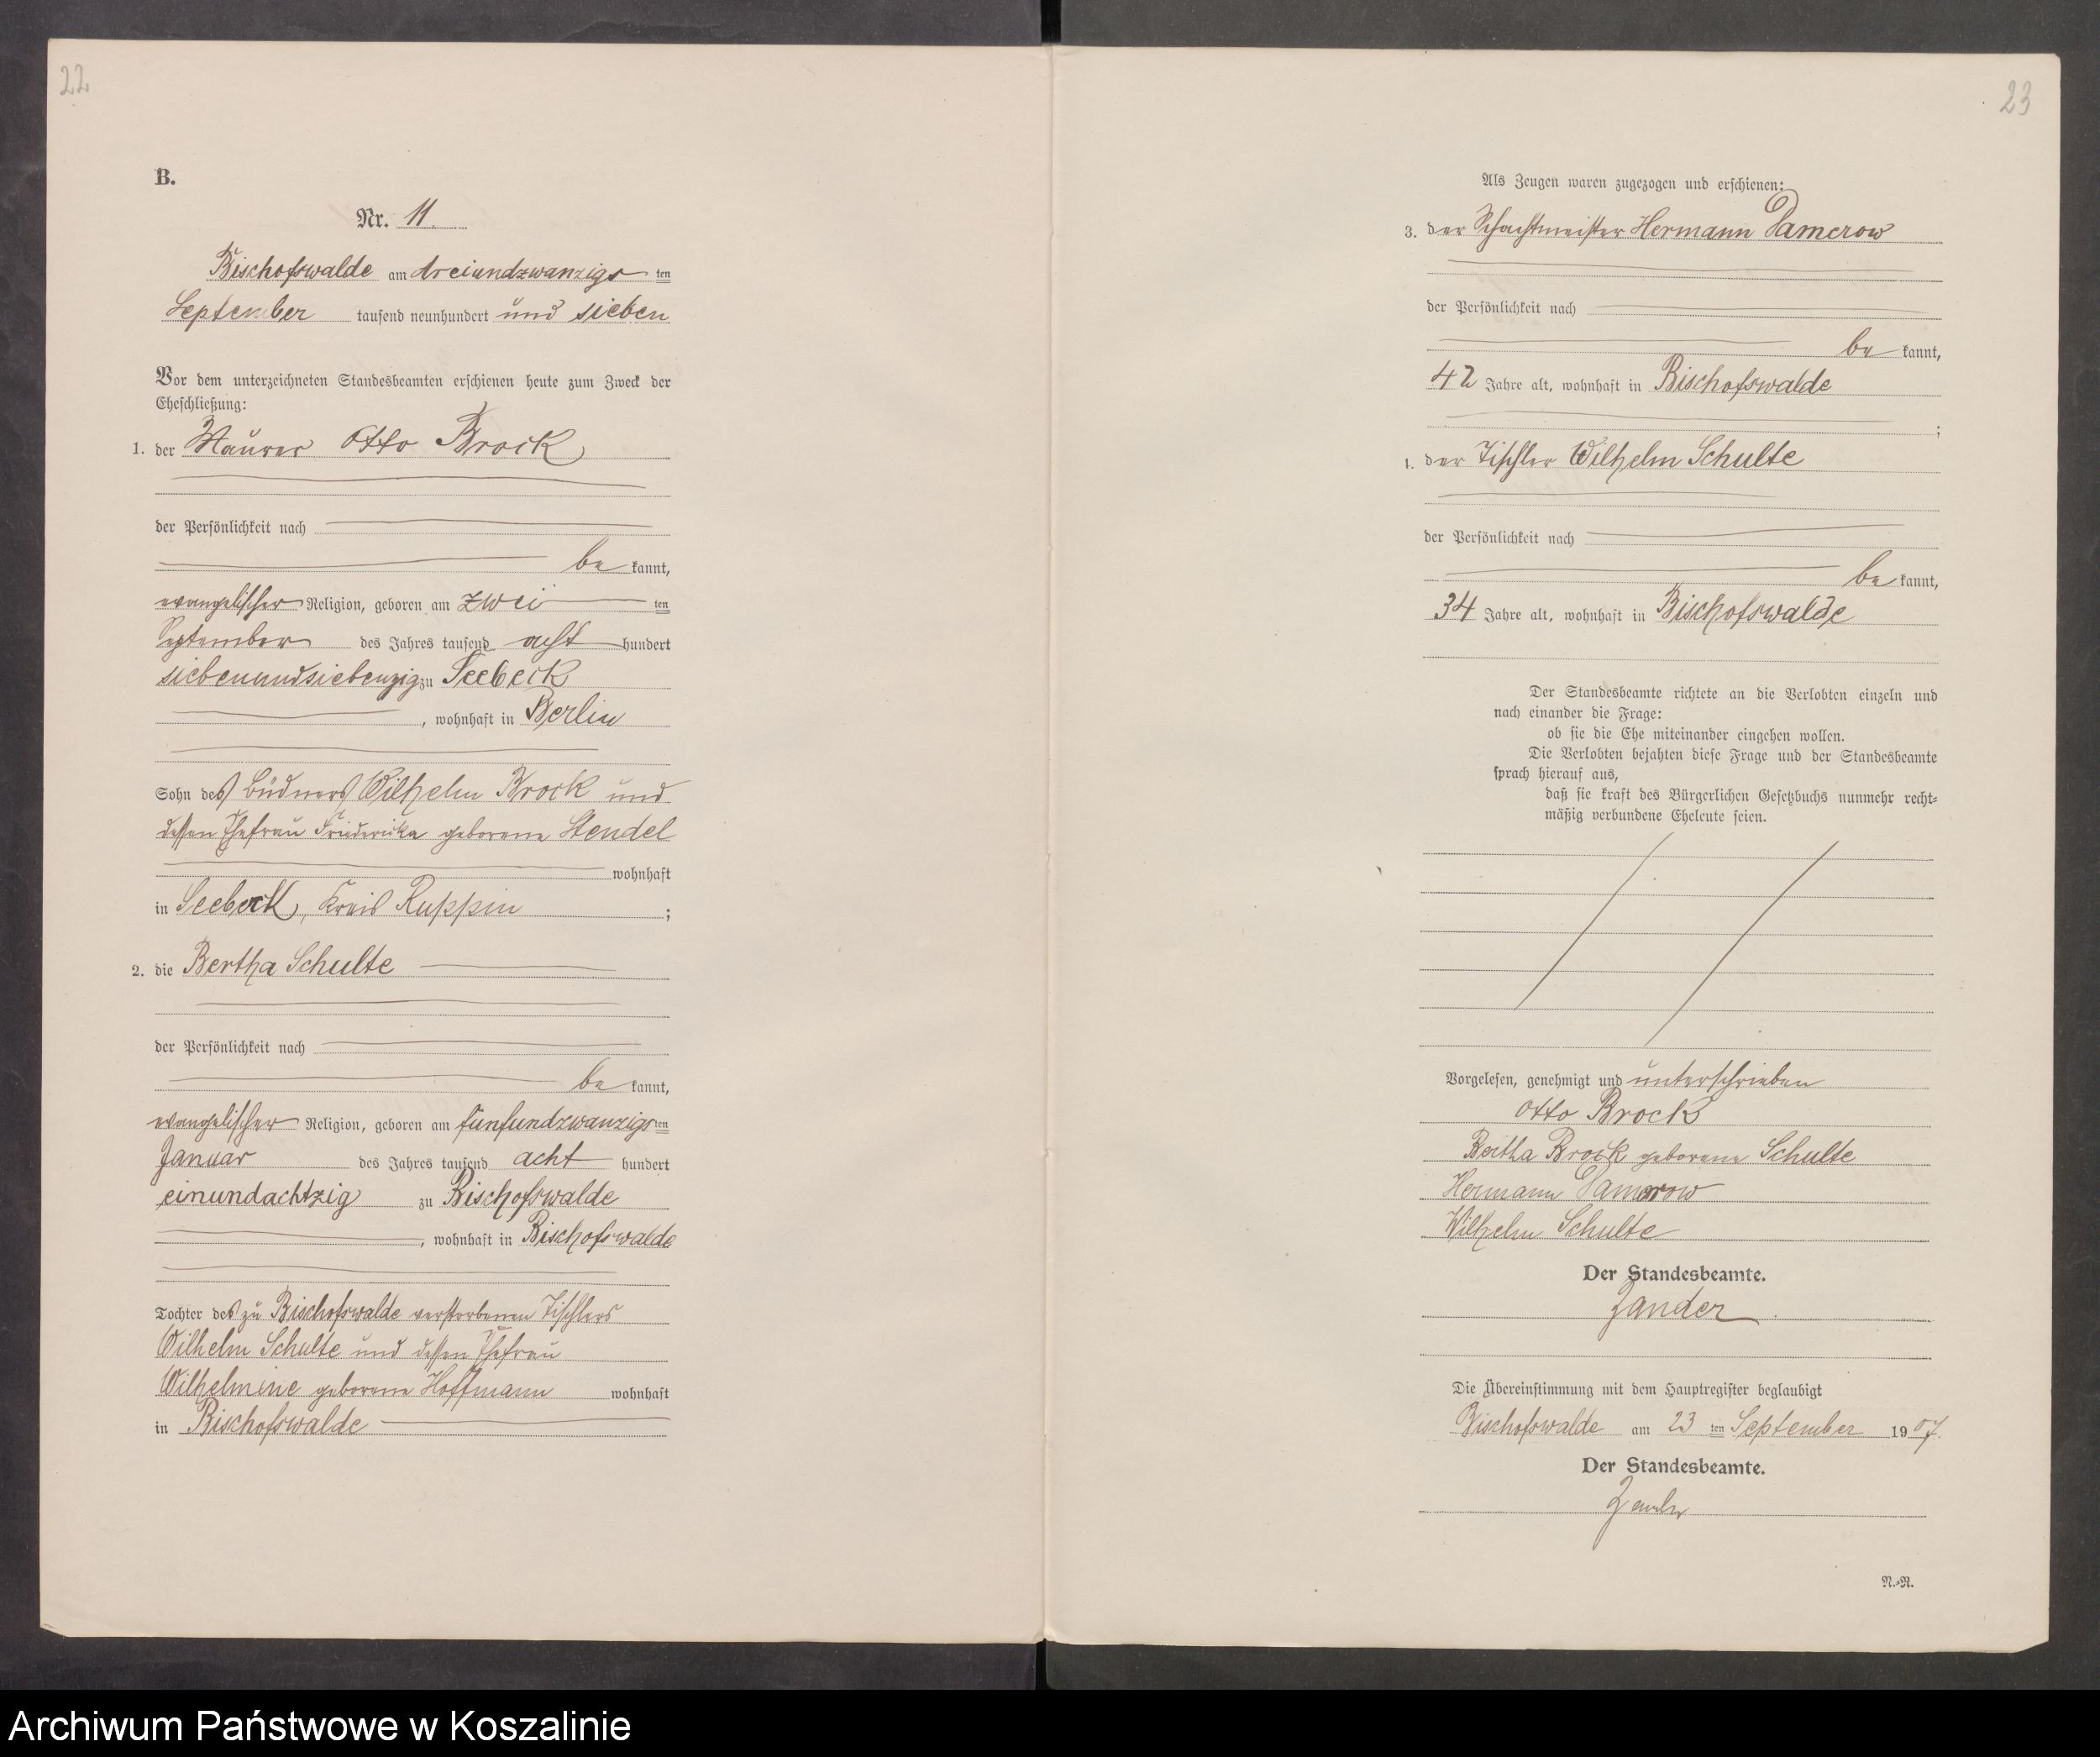 22
B.
Nr. 11.
Bischofswalde am dreiundzwanzigs ten
September tausend neunhundert und sieben
Vor dem unterzeichneten Standesbeamten erschienen heute zum Zweck der
Eheschließung:
1. der Maurer Otto Brock
der Persönlichkeit nach
be kannt,
evangelischer Religion, geboren am zwei ten
September des Jahres tausend acht hundert
siebenundsiebenzig zu Seebeck
, wohnhaft in Berlin
Sohn des Büdners Wilhelm Brock und
dessen Ehefrau Friedericke geborene Stendel
wohnhaft
in Seebeck, Kreis Ruppin ;
2. die Bertha Schulte
der Persönlichkeit nach
be kannt,
evangelischer Religion, geboren am fünfundzwanzigs ten
Januar des Jahres tausend acht hundert
einundachtzig zu Bischofswalde
, wohnhaft in Bischofswalde
Tochter des zu Bischofswalde verstorbenen Tischlers
Wilhelm Schulte und dessen Ehefrau
Wilhelmine geborene Hoffmann wohnhaft
in Bischofswalde
23
Als Zeugen waren zugezogen und erschienen:
3. der Schachtmeister Hermann Damerow
der Persönlichkeit nach
be kannt,
42 Jahre alt, wohnhaft in Bischofswalde
;
4. der Tischler Wilhelm Schulte
der Persönlichkeit nach
be kannt,
34 Jahre alt, wohnhaft in Bischofswalde
Der Standesbeamte richtete an die Verlobten einzeln und
nach einander die Frage:
ob sie die Ehe miteinander eingehen wollen.
Die Verlobten bejahten diese Frage und der Standesbeamte
sprach hierauf aus,
daß sie kraft des Bürgerlichen Gesetzbuchs nunmehr recht-
mäßig verbundene Eheleute seien.
Vorgelesen, genehmigt und unterschrieben
Otto Brock
Bertha Brock geborene Schulte
Hermann Damerow
Wilhelm Schulte
Der Standesbeamte.
Zander
Die Übereinstimmung mit dem Hauptregister beglaubigt
Bischofswalde am 23 ten September 1907.
Der Standesbeamte.
Zander
N.-R.
Archiwum Państwowe w Koszalinie